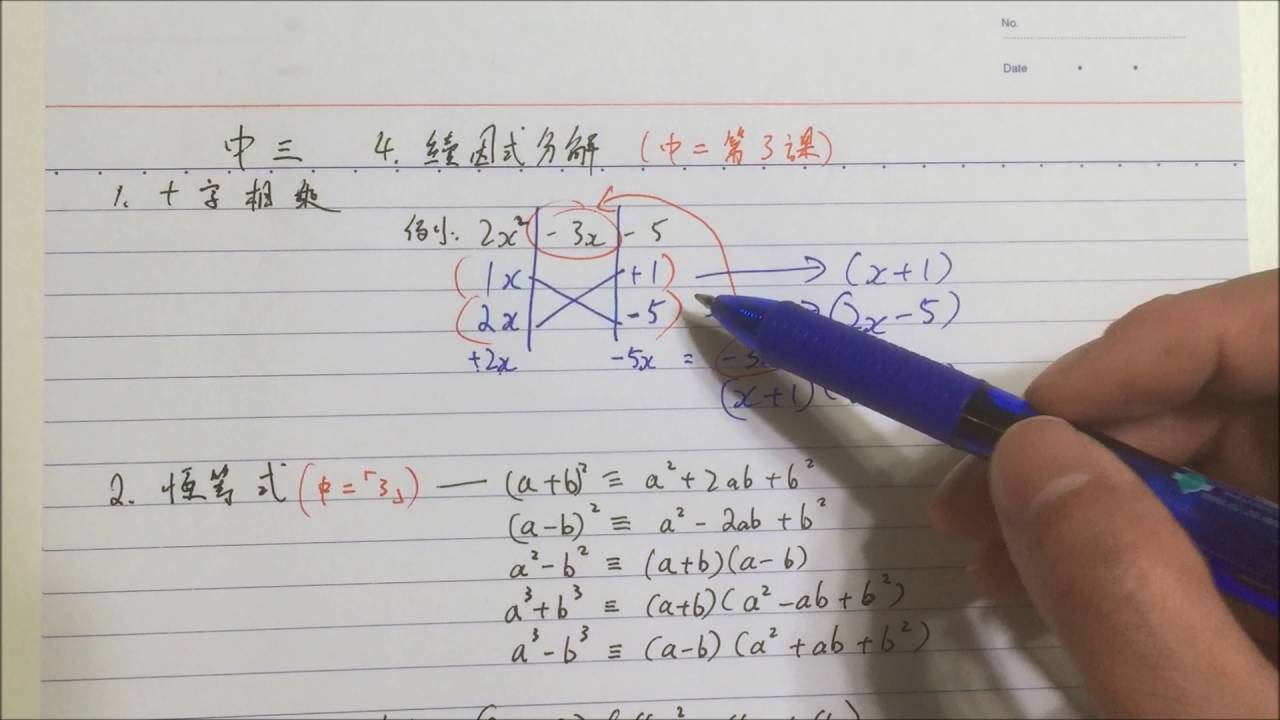 No.
Date
中三 4. 續因式分解 (中二第3課)
1. 十字相乘
例小: 2x² - 3x - 5
(1x +1) → (x+1)
(2x -5) → (2x-5)
+2x -5x =
(x+1)(
2. 恒等式 (中二「3」) — (a+b)² ≡ a² + 2ab + b²
(a-b)² ≡ a² - 2ab + b²
a² - b² ≡ (a+b)(a-b)
a³ + b³ ≡ (a+b)(a² - ab + b²)
a³ - b³ ≡ (a-b)(a² + ab + b²)